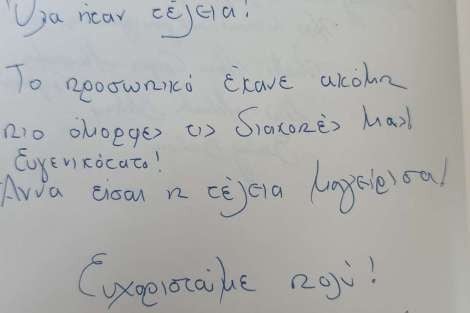 Όλα ήταν τέλεια!
Το προσωπικό έκανε ακόμη
πιο όμορφες τις διακοπές μας!
Ευγενικότατο!
Άννα είσαι η τέλεια μαγείρισσα!
Ευχαριστούμε πολύ!